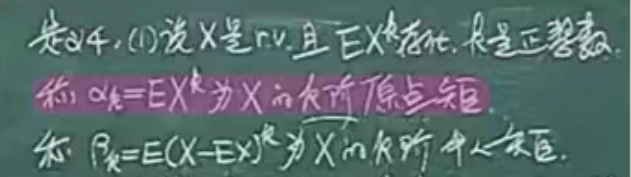 定义4.(1)设X是r.v.且EX^k存在.k是正整数
称α_k=EX^k为X的k阶原点矩
称β_k=E(X-EX)^k为X的k阶中心矩.